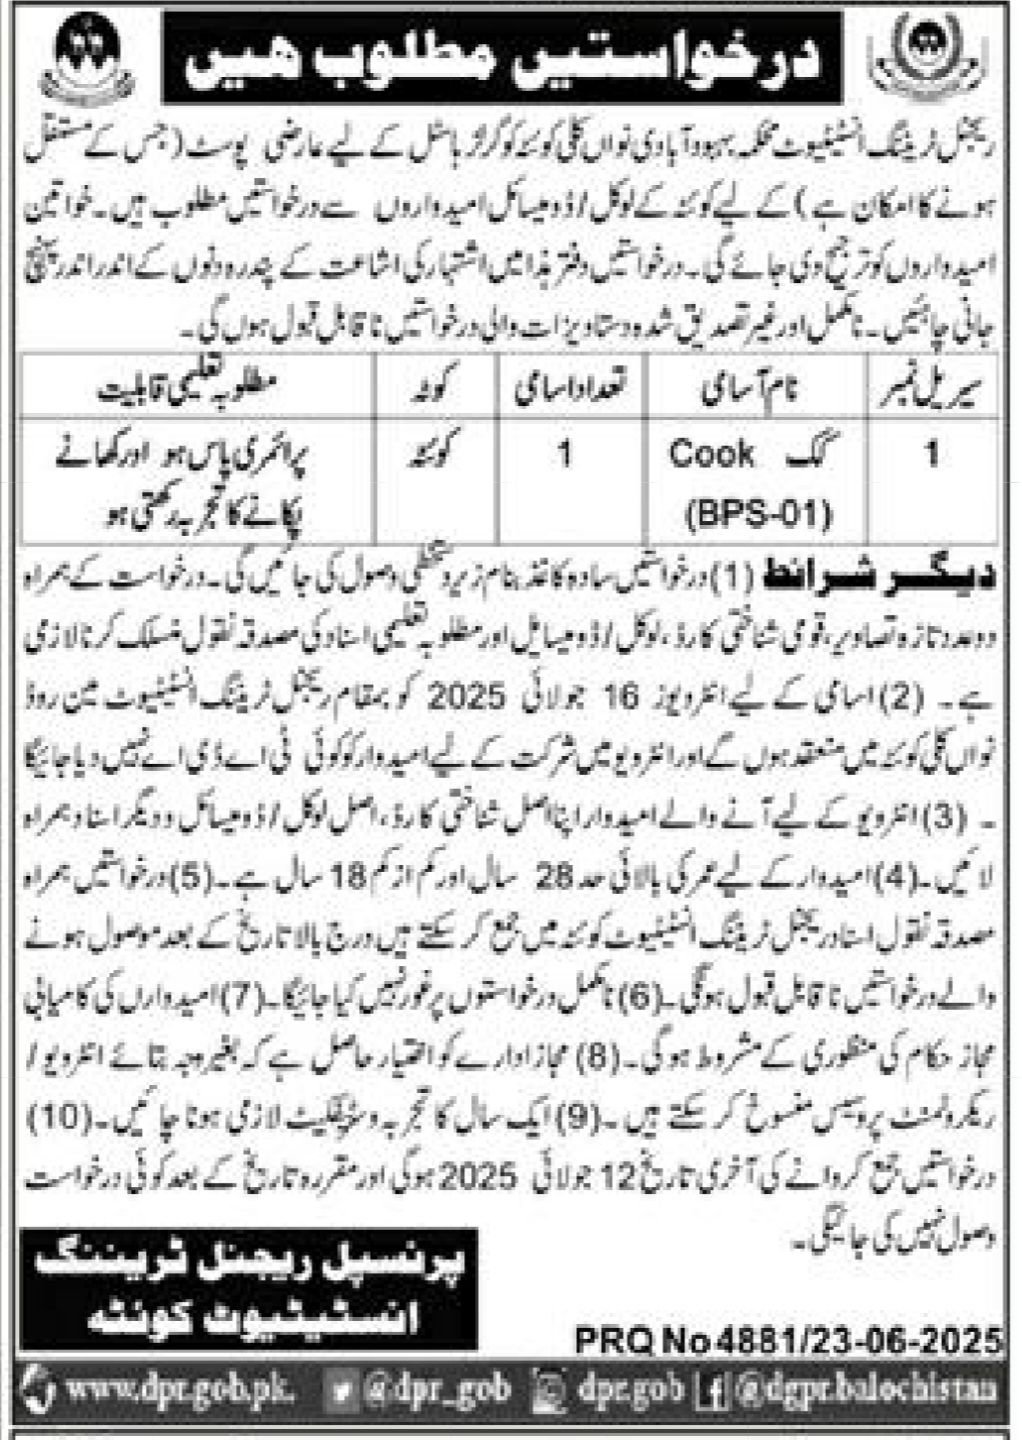 درخواستیں مطلوب ھیں
ریجنل ٹریننگ انسٹیٹیوٹ محکمہ بہبود آبادی نواں کلی کوئٹہ کو گرلز ہاسٹل کے لیے عارضی پوسٹ (جس کے مستقل
ہونے کا امکان ہے) کے لیے کوئٹہ کے لوکل/ڈومیسائل امیدواروں سے درخواستیں مطلوب ہیں۔ خواتین
امیدواروں کو ترجیح دی جائے گی۔ درخواستیں دفتر ہذا میں اشتہار کی اشاعت کے پندرہ دنوں کے اندر اندر پہنچ
جانی چاہئیں۔ نامکمل اور غیر تصدیق شدہ دستاویزات والی درخواستیں ناقابل قبول ہوں گی۔
سیریل نمبر نام آسامی تعداد اسامی کوٹہ مطلوبہ تعلیمی قابلیت
1 کک Cook 1 کوئٹہ پرائمری پاس ہو اور کھانے
(BPS-01) پکانے کا تجربہ رکھتی ہو
دیگر شرائط (1) درخواستیں سادہ کاغذ بنام زیر دستخطی وصول کی جائیں گی۔ درخواست کے ہمراہ
دو عدد تازہ تصاویر، قومی شناختی کارڈ، لوکل/ڈومیسایل اور مطلوبہ تعلیمی اسناد کی مصدقہ نقول منسلک کرنا لازمی
ہے۔ (2) اسامی کے لیے انٹرویوز 16 جولائی 2025 کو بمقام ریجنل ٹریننگ انسٹیٹیوٹ مین روڈ
نواں کلی کوئٹہ میں منعقد ہوں گے اور انٹرویو میں شرکت کے لیے امیدوار کو کوئی ٹی اے ڈی اے نہیں دیا جائیگا
۔ (3) انٹرویو کے لیے آنے والے امیدوار اپنا اصل شناختی کارڈ، اصل لوکل/ڈومیسائل و دیگر اسناد ہمراہ
لائیں۔ (4) امیدوار کے لیے عمر کی بالائی حد 28 سال اور کم از کم 18 سال ہے۔ (5) درخواستیں ہمراہ
مصدقہ نقول اسناد ریجنل ٹریننگ انسٹیٹیوٹ کوئٹہ میں جمع کر سکتے ہیں درج بالا تاریخ کے بعد موصول ہونے
والے درخواستیں ناقابل قبول ہوگی۔ (6) نامکمل درخواستوں پر غور نہیں کیا جائیگا۔ (7) امیدواراں کی کامیابی
مجاز حکام کی منظوری کے مشروط ہوگی۔ (8) مجاز ادارے کو اختیار حاصل ہے کہ بغیر وجہ بتائے انٹرویو/
ریکروٹمنٹ پروسیس منسوخ کر سکتے ہیں۔ (9) ایک سال کا تجربہ و سرٹیفکیٹ لازمی ہونا چائیں۔ (10)
درخواستیں جمع کروانے کی آخری تاریخ 12 جولائی 2025 ہوگی اور مقررہ تاریخ کے بعد کوئی درخواست
وصول نہیں کی جائیگی۔
پرنسپل ریجنل ٹریننگ
انسٹیٹیوٹ کوئٹہ
PRQ No 4881/23-06-2025
www.dpr.gob.pk. @dpr_gob dpr.gob @dgpr.balochistan